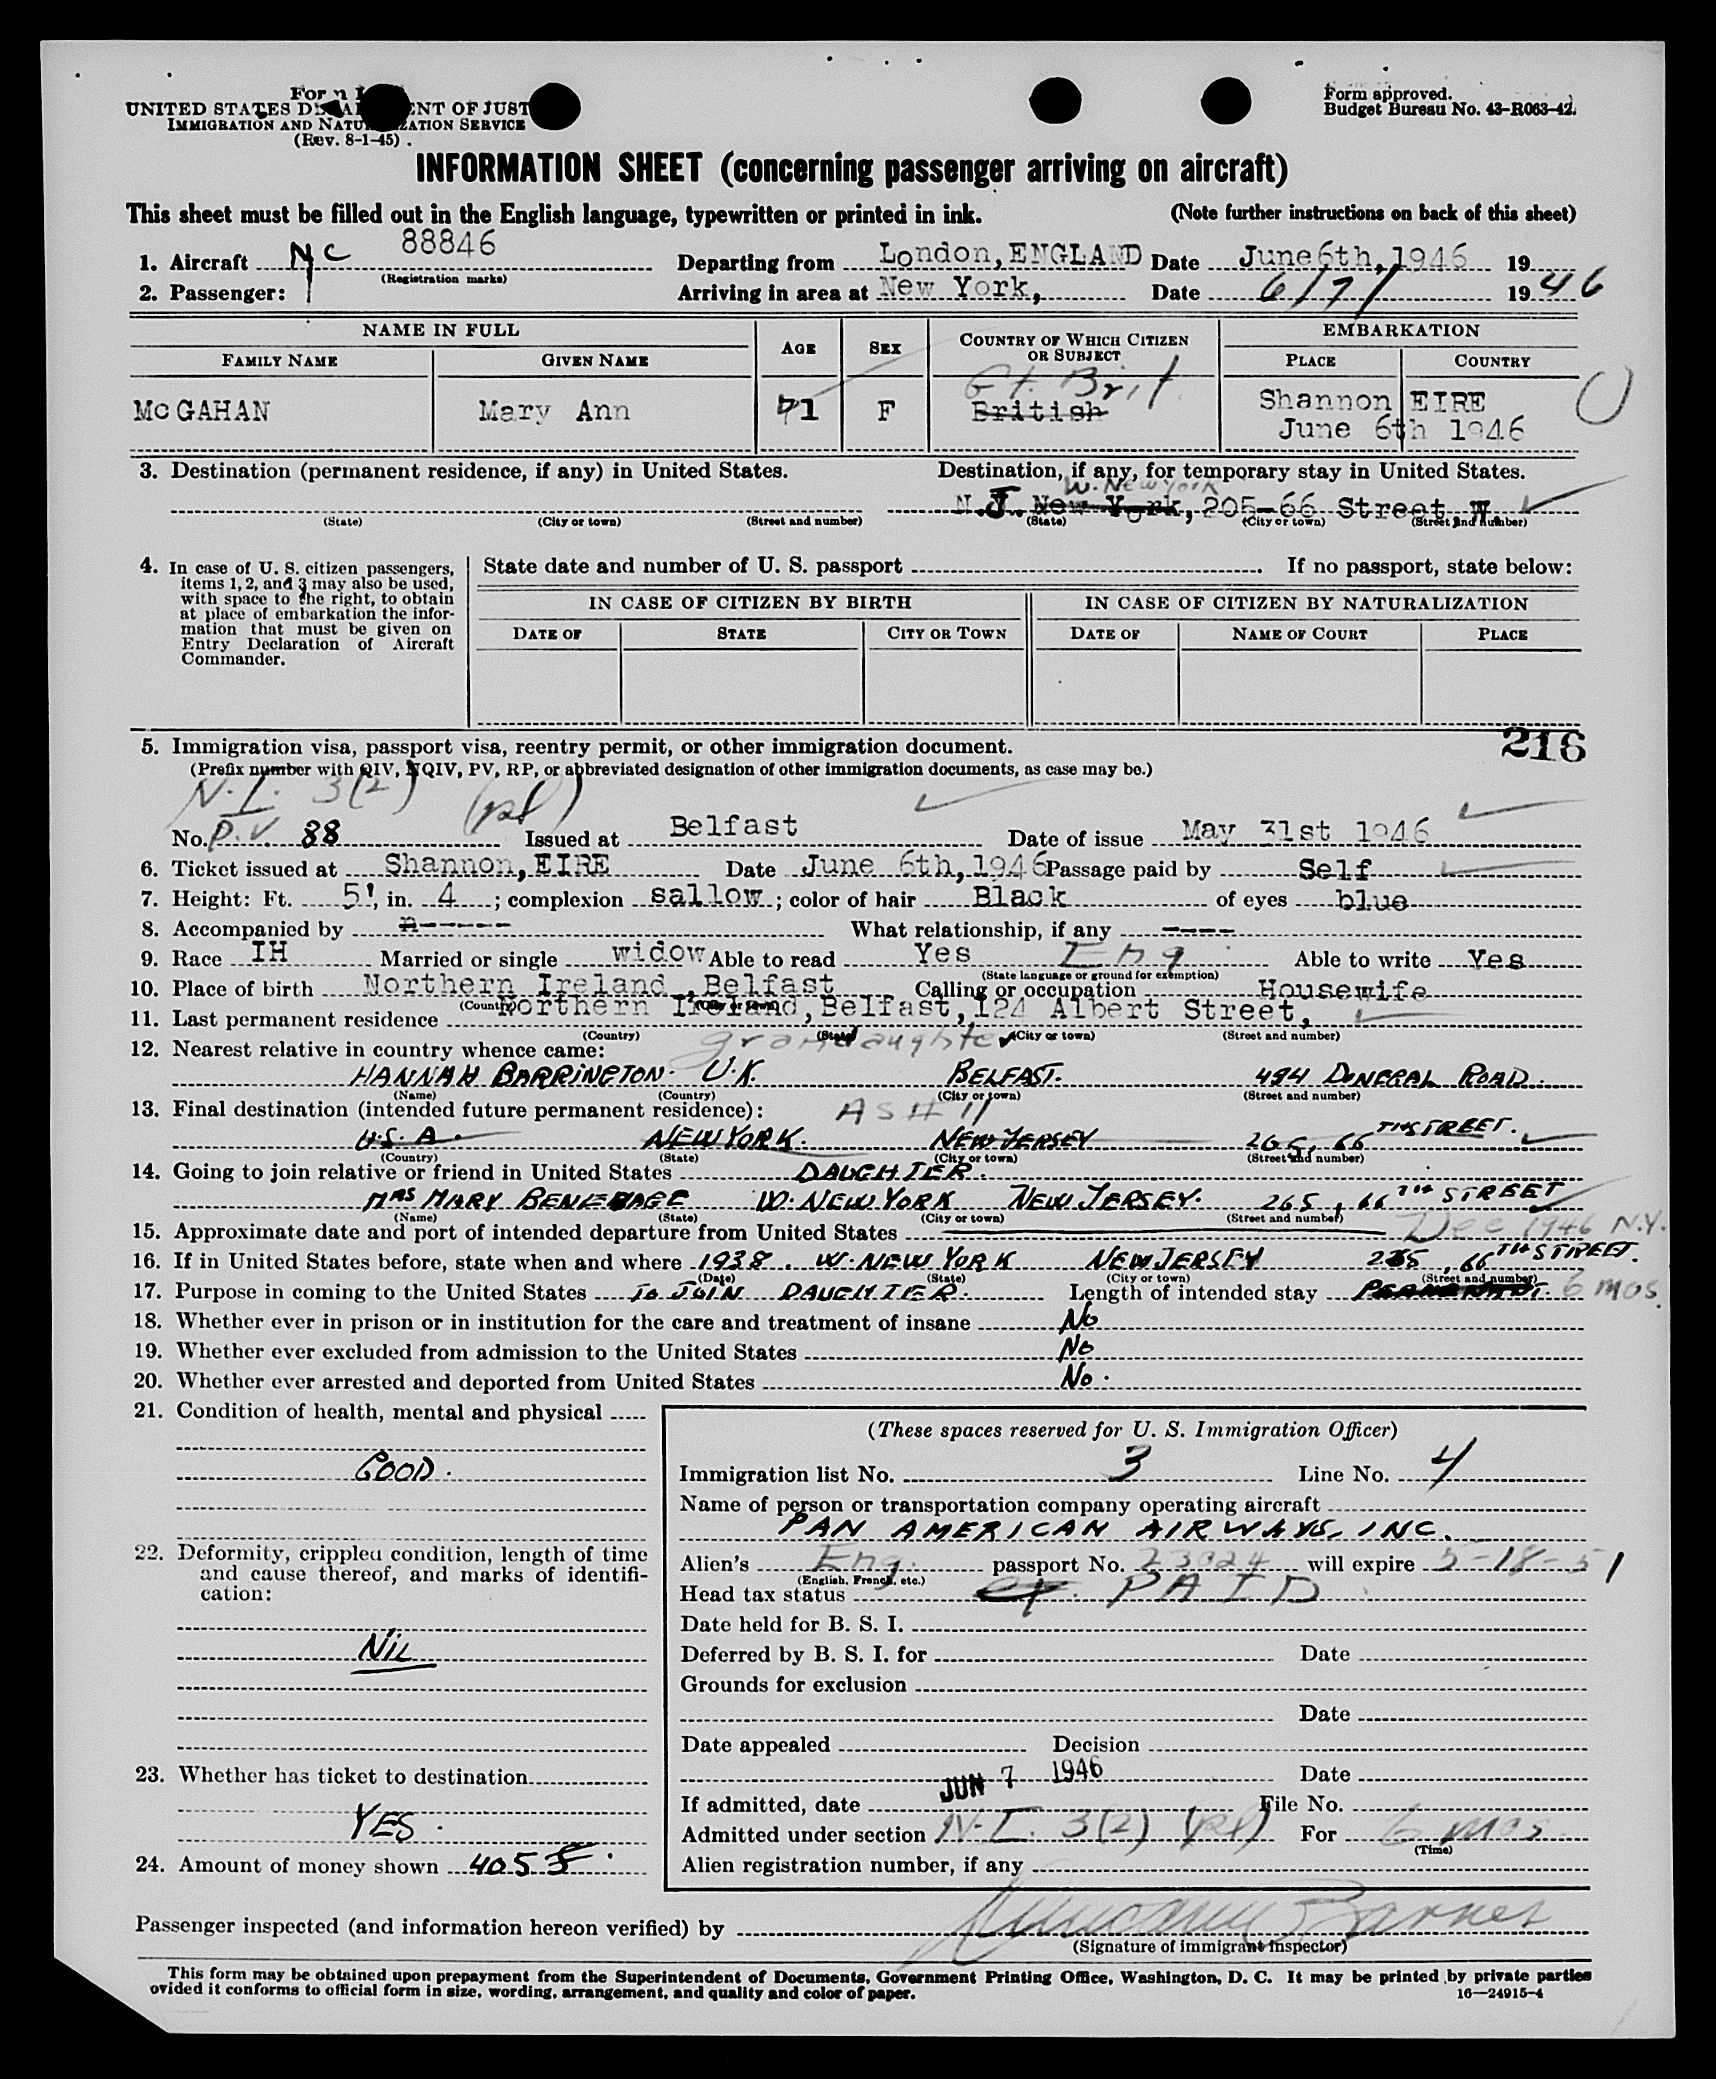 Form I
UNITED STATES DEPARTMENT OF JUST
IMMIGRATION AND NATURALIZATION SERVICE
(Rev. 8-1-45)
Form approved.
Budget Bureau No. 43-R063-42.
INFORMATION SHEET (concerning passenger arriving on aircraft)
This sheet must be filled out in the English language, typewritten or printed in ink. (Note further instructions on back of this sheet)
1. Aircraft NC 88846 Departing from London, ENGLAND Date June 6th, 1946 19
(Registration marks)
2. Passenger: Arriving in area at New York, Date 6/7/ 1946
NAME IN FULL AGE SEX COUNTRY OF WHICH CITIZEN OR SUBJECT EMBARKATION
FAMILY NAME GIVEN NAME PLACE COUNTRY
Gt. Brit.
McGAHAN Mary Ann 71 F British Shannon EIRE
June 6th 1946
3. Destination (permanent residence, if any) in United States. Destination, if any, for temporary stay in United States.
W. New York
N.J. New York, 205-66 Street, W.
(State) (City or town) (Street and number) (State) (City or town) (Street and number)
4. In case of U. S. citizen passengers, items 1, 2, and 3 may also be used, with space to the right, to obtain at place of embarkation the information that must be given on Entry Declaration of Aircraft Commander.
State date and number of U. S. passport If no passport, state below:
IN CASE OF CITIZEN BY BIRTH IN CASE OF CITIZEN BY NATURALIZATION
DATE OF STATE CITY OR TOWN DATE OF NAME OF COURT PLACE
216
5. Immigration visa, passport visa, reentry permit, or other immigration document.
(Prefix number with QIV, NQIV, PV, RP, or abbreviated designation of other immigration documents, as case may be.)
N.I. 3(2) (pl)
No. P.V. 88 Issued at Belfast Date of issue May 31st 1946
6. Ticket issued at Shannon, EIRE Date June 6th, 1946 Passage paid by Self
7. Height: Ft. 5', in. 4 ; complexion sallow ; color of hair Black of eyes blue
8. Accompanied by n----- What relationship, if any ----
9. Race IH Married or single widow Able to read Yes Eng. Able to write Yes
(State language or ground for exemption)
10. Place of birth Northern Ireland, Belfast Calling or occupation Housewife
(Country) (City or town)
11. Last permanent residence Northern Ireland, Belfast, 124 Albert Street,
(Country) (State) (City or town) (Street and number)
12. Nearest relative in country whence came: granddaughter
HANNAH BARRINGTON. U.K. BELFAST. 494 DONEGAL ROAD.
(Name) (Country) (City or town) (Street and number)
13. Final destination (intended future permanent residence): AS # 11
U.S.A. NEW YORK. NEW JERSEY 265, 66TH STREET.
(Country) (State) (City or town) (Street and number)
14. Going to join relative or friend in United States DAUGHTER.
MRS MARY W. NEW YORK NEW JERSEY. 265, 66TH STREET
(Name) (State) (City or town) (Street and number)
15. Approximate date and port of intended departure from United States Dec 1946 N.Y.
16. If in United States before, state when and where 1938. W. NEW YORK NEW JERSEY 265, 66TH STREET.
(Date) (State) (City or town) (Street and number)
17. Purpose in coming to the United States TO JOIN DAUGHTER. Length of intended stay PERMANENT. 6 mos.
18. Whether ever in prison or in institution for the care and treatment of insane No
19. Whether ever excluded from admission to the United States No
20. Whether ever arrested and deported from United States No.
21. Condition of health, mental and physical
GOOD.
22. Deformity, crippled condition, length of time and cause thereof, and marks of identification:
NIL
23. Whether has ticket to destination
YES.
24. Amount of money shown 405 $.
(These spaces reserved for U. S. Immigration Officer)
Immigration list No. 3 Line No. 4
Name of person or transportation company operating aircraft
PAN AMERICAN AIRWAYS, INC.
Alien's Eng. passport No. 23024 will expire 5-18-51
(English, French, etc.)
Head tax status PAID
Date held for B. S. I.
Deferred by B. S. I. for Date
Grounds for exclusion
Date
Date appealed Decision
Date
If admitted, date JUN 7 1946 File No.
Admitted under section N.I. 3(2) (pl) For 6 mos.
(Time)
Alien registration number, if any
Passenger inspected (and information hereon verified) by Barnes
(Signature of immigrant inspector)
This form may be obtained upon prepayment from the Superintendent of Documents, Government Printing Office, Washington, D. C. It may be printed by private parties
ovided it conforms to official form in size, wording, arrangement, and quality and color of paper. 16—24915-4